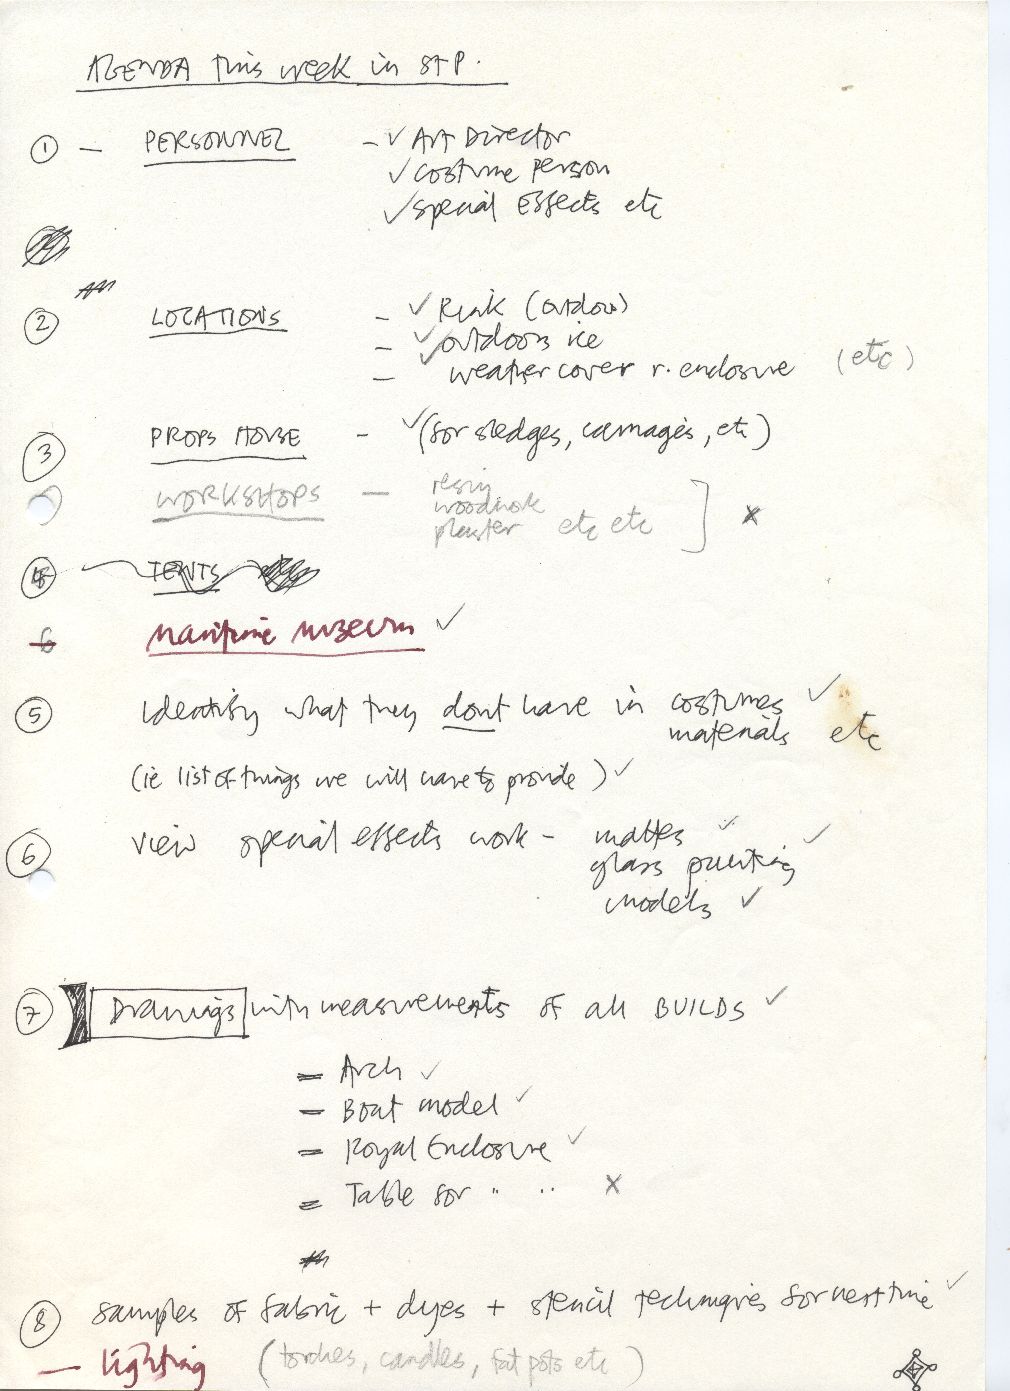 AGENDA this week in STP.
① — PERSONNEL — ✓ Art Director
✓ costume person
✓ special Effects etc
② LOCATIONS — ✓ Rink (outdoor)
— ✓ outdoors ice
— ✓ weather cover r. enclosure (etc)
③ PROPS HOUSE — ✓ (for sledges, carriages, etc)
WORKSHOPS — resin
woodwork
plaster etc etc ] x
④ TENTS
6 Maritime Museum ✓
⑤ identify what they dont have in costumes ✓
materials etc
(ie list of things we will have to provide) ✓
⑥ view special effects work — mattes ✓ ✓
glass painting
models ✓
⑦ Drawings with measurements of all BUILDS ✓
— Arch ✓
— Boat model ✓
— Royal Enclosure ✓
— Table for " " x
⑧ samples of fabric + dyes + stencil techniques for next time ✓
— lighting (torches, candles, fat pots etc)